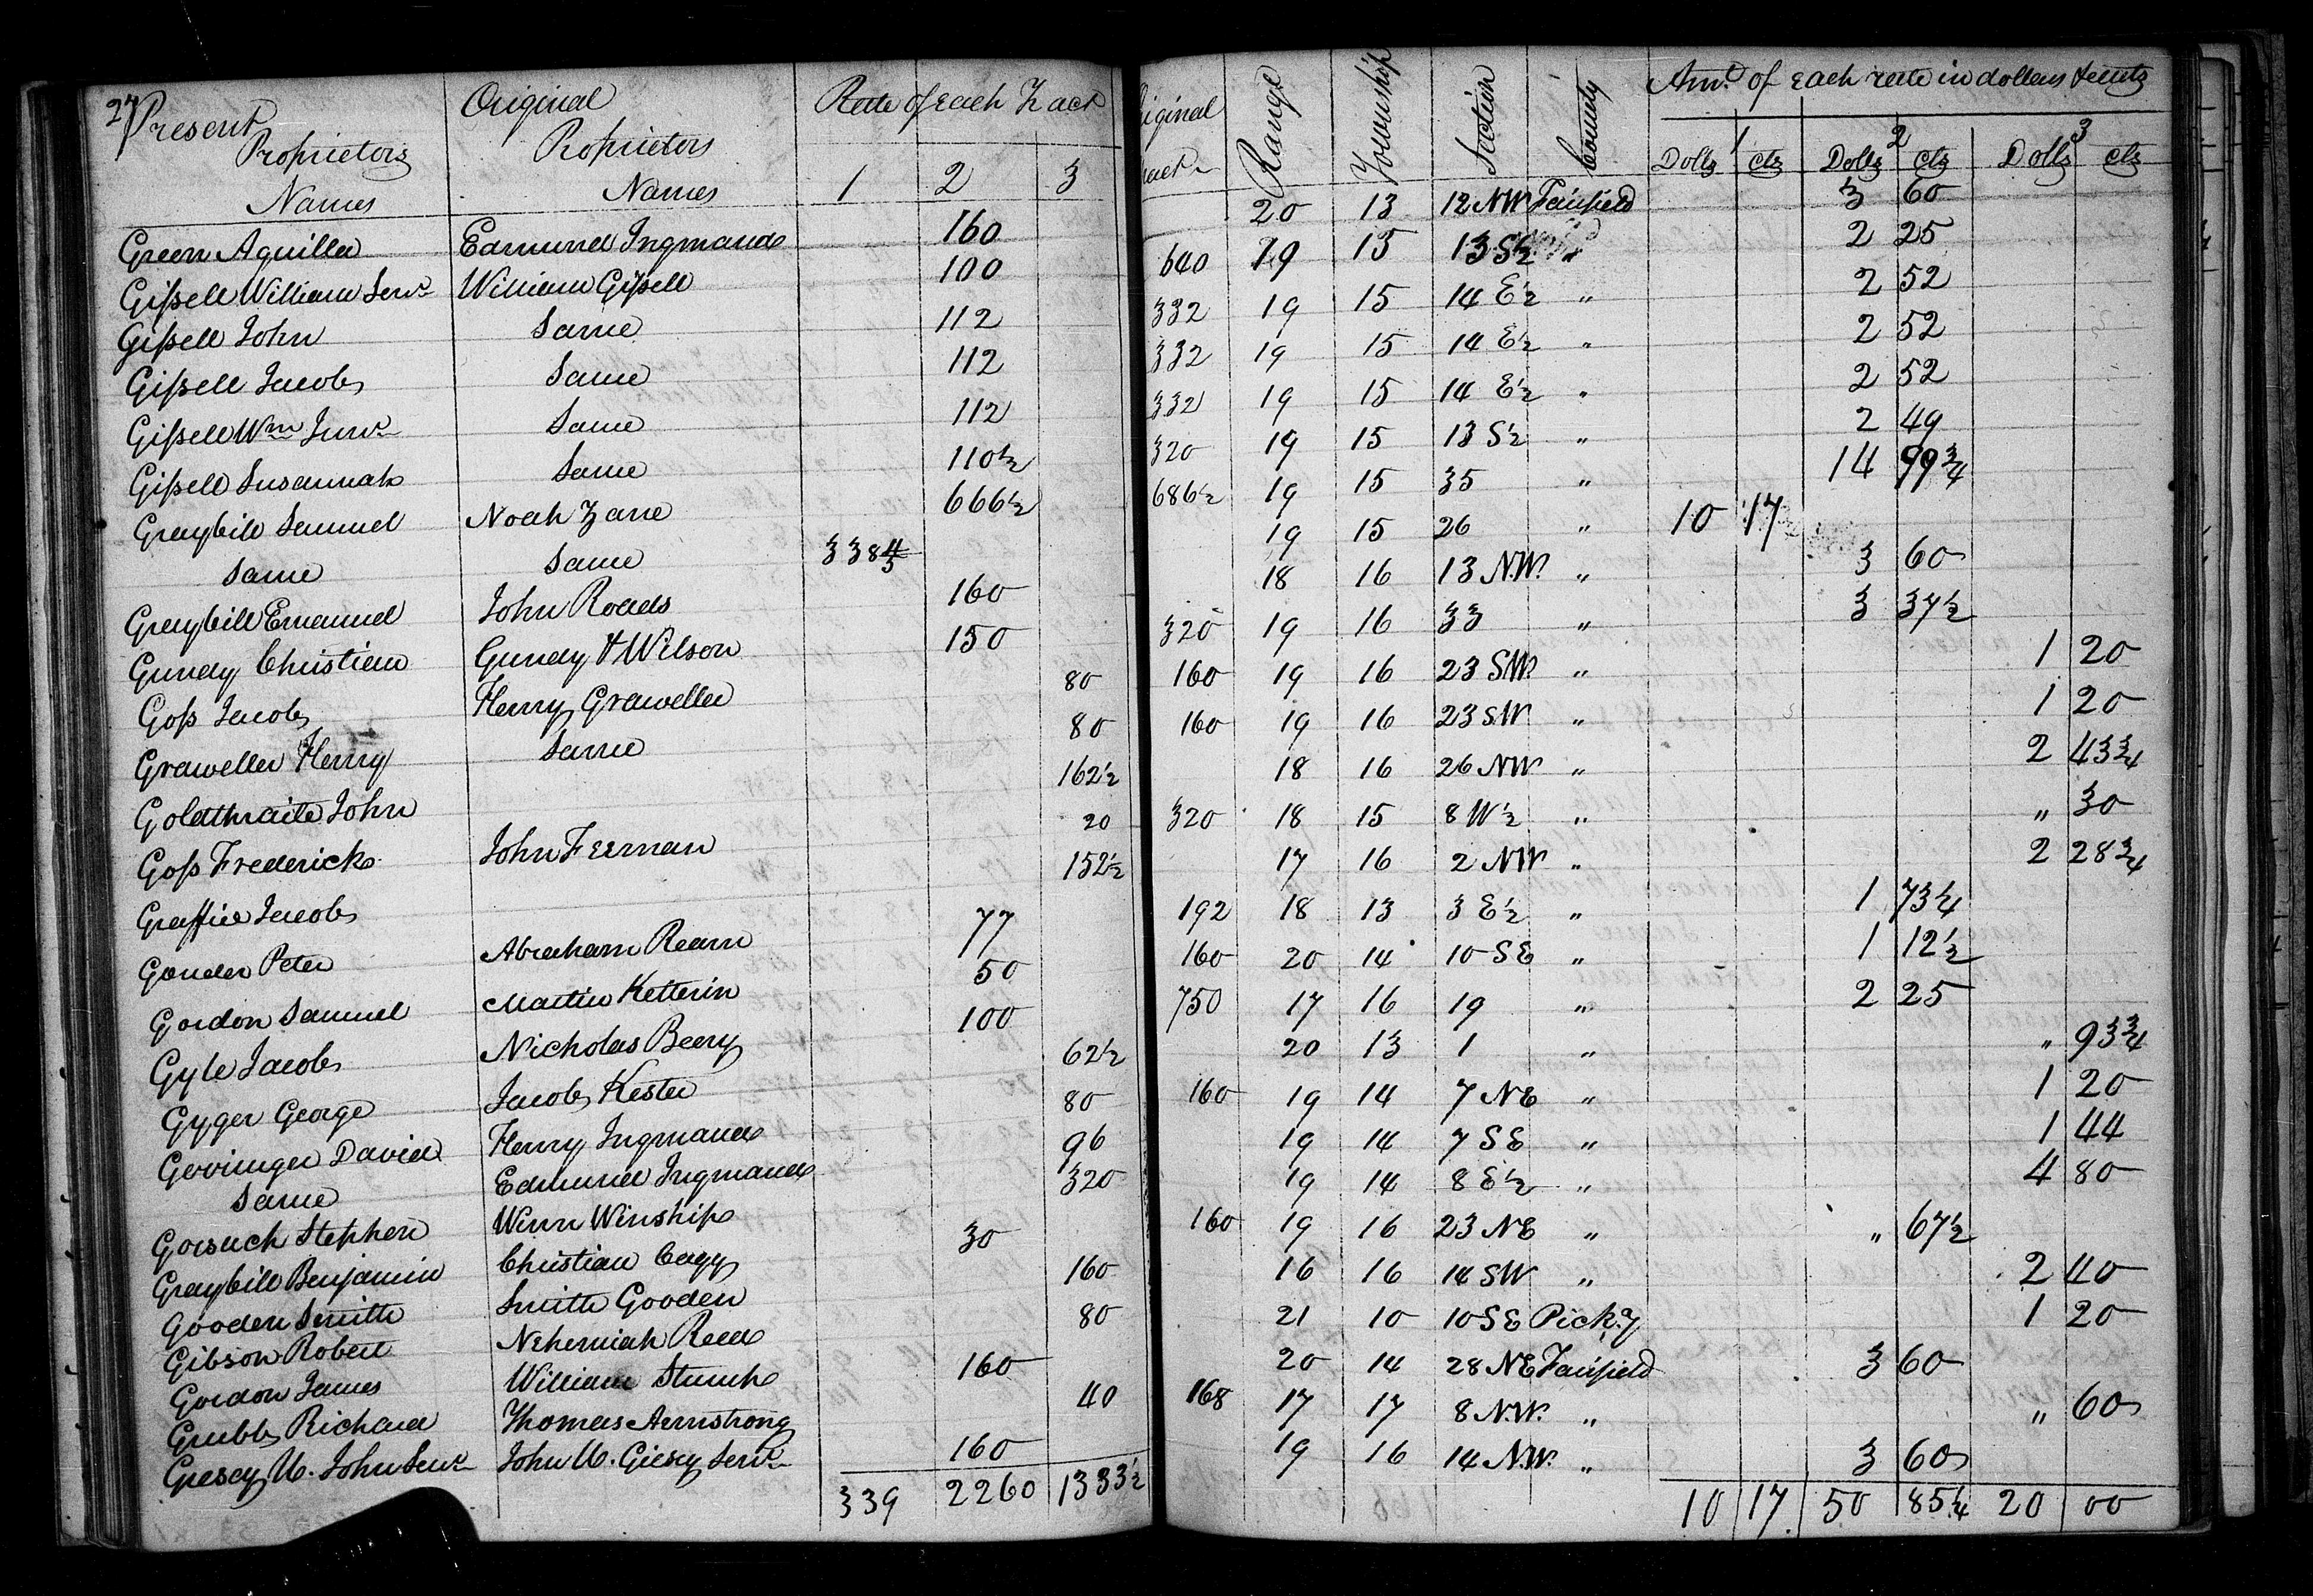 27 Present Proprietors Names | Original Proprietors Names | Rate of each Tract 1 2 3 | Original Tract | Range | Township | Section | County | Amt. of each rate in dollars & cents
1 Dolls cts | 2 Dolls cts | 3 Dolls cts
Green Aquilla | Edmund Ingmand | 160 | 20 | 13 | 12 NW | Fairfield | 3 60
Gißell William Senr | William Gißell | 100 | 640 | 19 | 15 | 13 S½ | " | 2 25
Gißell John | Same | 112 | 332 | 19 | 15 | 14 E½ | " | 2 52
Gißell Jacob | Same | 112 | 332 | 19 | 15 | 14 E½ | " | 2 52
Gißell Wm Junr | Same | 112 | 332 | 19 | 15 | 14 E½ | " | 2 52
Gißell Susannah | Same | 110½ | 320 | 19 | 15 | 13 S½ | " | 2 49
Graybill Samuel | Noah Zane | 666½ | 686½ | 19 | 15 | 35 | " | 14 99¾
Same | Same | 338⅘ | 19 | 15 | 26 | " | 10 17
Graybill Emanuel | John Roads | 160 | 18 | 16 | 13 N.W. | " | 3 60
Gundy Christian | Gundy & Wilson | 150 | 320 | 19 | 16 | 33 | " | 3 37½
Goß Jacob | Henry Graweller | 80 | 160 | 19 | 16 | 23 S.W. | " | 1 20
Graweller Henry | Same | 80 | 160 | 19 | 16 | 23 SW | " | 1 20
Goldthraite John | 162½ | 18 | 16 | 26 NW | " | 2 43¾
Goß Frederick | John Feeman | 20 | 320 | 18 | 15 | 8 W½ | " | " 30
Graffice Jacob | 152½ | 17 | 16 | 2 NW | " | 2 28¾
Gonder Peter | Abraham Ream | 77 | 192 | 18 | 13 | 3 E½ | " | 1 73¼
Gordon Samuel | Martin Ketterin | 50 | 160 | 20 | 14 | 10 SE | " | 1 12½
Gyle Jacob | Nicholas Beery | 100 | 750 | 17 | 16 | 19 | " | 2 25
Gyger George | Jacob Kester | 62½ | 20 | 13 | 1 | " | " 93¾
Gerringer David | Henry Ingmand | 80 | 160 | 19 | 14 | 7 NE | " | 1 20
Same | Edmund Ingmand | 96 | 19 | 14 | 7 SE | " | 1 44
Gorsuch Stephen | Winn Winship | 320 | 19 | 14 | 8 E½ | " | 4 80
Graybill Benjamin | Christian Cagy | 30 | 160 | 19 | 16 | 23 NE | " | " 67½
Gooden Smith | Smith Gooden | 160 | 16 | 16 | 14 SW | " | 2 40
Gibson Robert | Nehemiah Reed | 80 | 21 | 10 | 10 SE | Pick.y | 1 20
Gordon James | William Stumh | 160 | 20 | 14 | 28 NE | Fairfield | 3 60
Grubb Richard | Thomas Armstrong | 40 | 168 | 17 | 17 | 8 N.W. | " | " 60
Giesey U. John Senr | John U. Giesey Senr | 160 | 19 | 16 | 14 N.W. | " | 3 60
339 | 2260 | 1333½ | 10 17 | 50 85¼ | 20 00